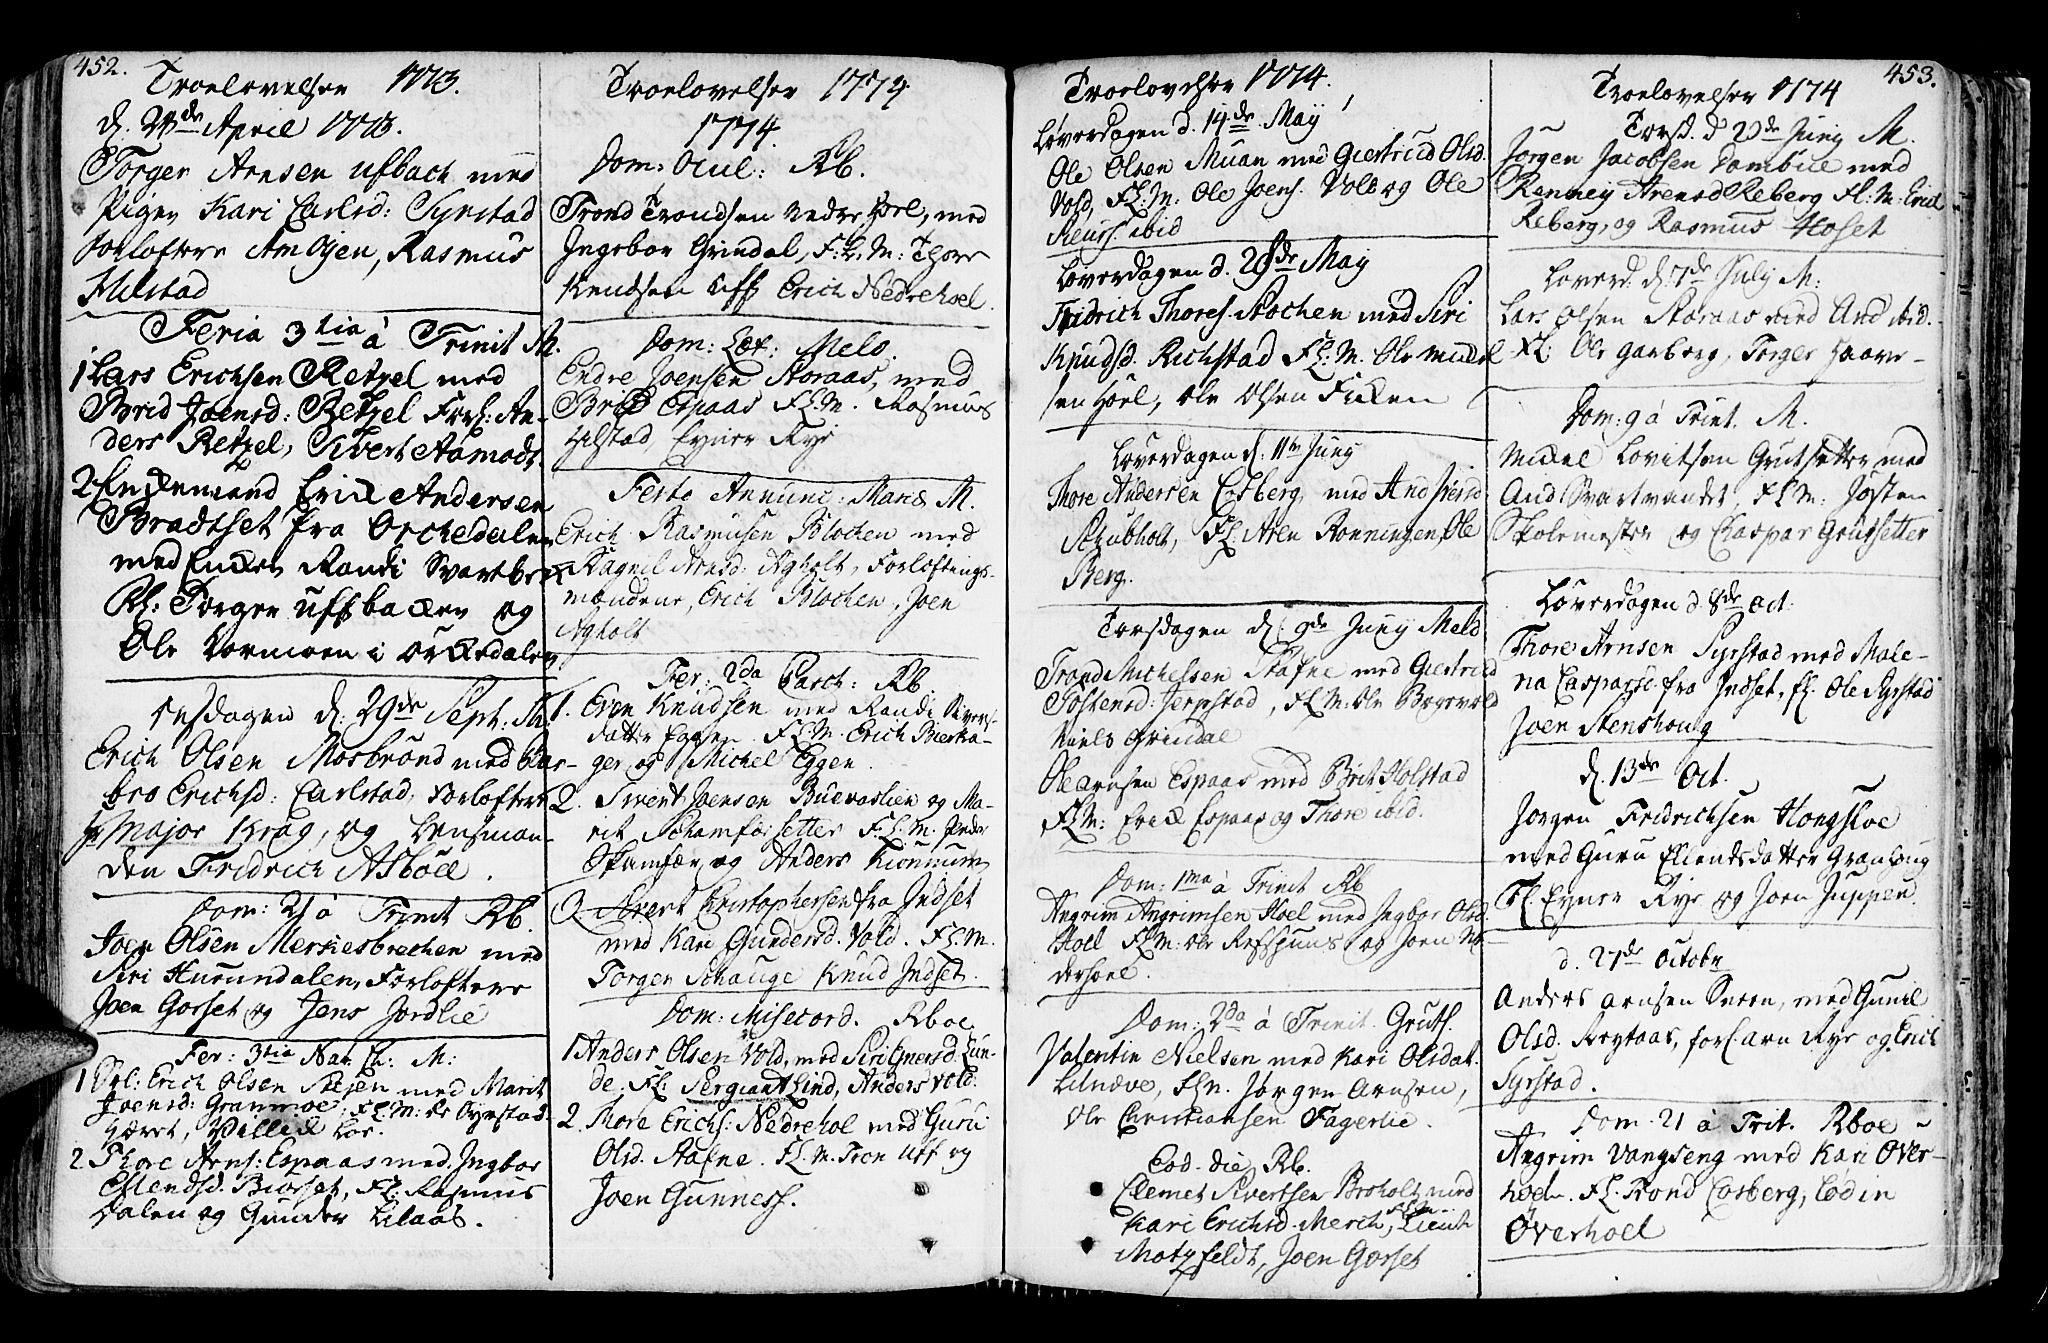 452.
Troelovelser 1773.
d. 24de April 1773.
Torger Arnsen Ufbach med
Pigen Kari Carlsd: Syrstad
forloftere Am Øyen, Rasmus
Hilstad
Feria 3tia á Trinit M.
1 Lars Erichsen Retzel med
Brid Joensd: Retzel Forl: An-
ders Retzel, Sivert Aamodt.
2 Enkemand Erik Andersen
Bradtset fra Orchedalen
med Enken Randi Svartbek
Fl: Torger Uffbaken og
Ole Vormoen i Orkedalen
Onsdagen d. 29de Sept. M.
Erich Olsen Mosbrønd med Bar-
bro Erichsd: Carlstad, Forloftere
Hr Major Krag, og Lensman-
den Fridrich Asbøll.
Dom: 21 á Trinit Rb.
Joen Olsen Merkesbrechen med
Siri Hurundalen, Forloftere
Joen Gorset og Jens Jordlie
Fer: 3tia Nat. Ch: M:
1 Erich Olsen med Marit
Joensd: Grammoe, Fl: M: Ole Syrstad
Hæret, Willik Loe.
2 Thore Arns: Espaas med Ingbor
Estendsd. Biorset, Fl: Rasmus
Dalen og Gunder Lilaas.
Troelovelser 1774
1774.
Dom: Ocul: Rb.
Trond Trondsen Neder Hoel, med
Ingebor Grindal, F. L. M: Thore
Knudsen Uff Erich Nedrehoel.
Dom: Læt: Melo.
Endre Joensen Storaas, med
Brit Espaas F.L.M. Rasmus
Hilstad, Eyner Rye
Festo Annunc: Mariæ M.
Erich Rasmusen Blochen med
Ragnil Arnsd: Agholt, Forloftnings-
mændene, Erich Blochen, Joen
Agholt
Fer: 2da Pasch: Rb
1. Even Knudsen med Randi Sivers-
datter Eggen. F.L.M. Erich Bierka-
ger og Michel Eggen.
2. Sivert Joensen Buevaslien og Ma-
rit Schamfærsetter F. L. M. Peder
Skamfær, og Anders Kionnum
3 Sivert Christophersen fra Indset
med Kari Gundersd. Vold. F.L.M.
Torger Schauge Knud Indset.
Dom: Misecord. Rboe.
1 Anders Olsen Vold, med Siri Einersd: Lun-
de. Fl: Sergiant Lind, Anders Vold.
2. Thore Erichs: Nedrehol med Guru
Olsd. Stafne. F.L.M. Tron Uff og
Joen Gunness.
Troelovelser 1774.
Løverdagen d. 14de May
Ole Olsen Muan med Giertrud Olsd.
Vold, F.L.M: Ole Joens. Vold og Ole
Siurs. ibid
Løverdagen d. 28de May
Fridrich Thores. Stochen med Siri
Knudsd. Richstad F.L.M. Ole Mikel
sen Hoel, Ole Olsen Fikken
Løverdagen d. 11te Junij
Thore Andersen Cosberg, med And Siversd.
Skubholt, FL: Aren Rønningen, Ole
Berg.
Torsdagen d. 9de Junij Meld
Trond Michelsen Stafne med Giertrud
Tostensd: Jerpstad, F.L.M: Ole Bogevold
Niels Grindal
Ole Arnsen Espaas med Brit Holstad
F.L.M: Erik Espaas og Thore ibid.
Dom: 1ma á Trinit Rb
Angrim Angrimsen Hoel med Ingbor Olsd.
Hoel F.L.M: Ole Refspuns og Joen Ne-
derhoel.
Dom: 2da á Trinit. Gruts.
Valentin Nielsen med Kari Olsdat.
Lilnæve, F.L.M. Jørgen Arnsen,
Ole Christiansen Fagerlie.
Eod. die Rb.
Clemet Sivertsen Broholt med
Kari Erichsd. Merch, F.L.M. Lieut
Motzfeldt, Joen Gorset
453.
Troelovelser 1774
Torsd. d 23de Junij M.
Jørgen Jacobsen Dambue med
Renney Arensd Reberg Fl: M: Erich
Reberg, og Rasmus Hoset
Løverd. d. 7de Julij M:
Lars Olsen Storaas med And ibid.
FL: Ole Garberg, Torger Haave-
Dom: 9 á Trint. M.
Mikkel Lovitsen Grutsetter med
And Svartvandet, F.L.M: Josten
Skolemester og Chaspar Grutsetter
Løverdagen d 8de Oct:
Thore Arnsen Syrstad med Male-
na Caspersd. fra Indset, fl. Ole Syrstad
Joen Stenshoug
d. 13de Oct.
Jørgen Fridrichsen Hongsloe
med Guru Ellendsdatter Granhoug
Fl. Eyner Rye og Joen Juppen.
d. 27de Octobr
Anders Arnsen Sneen, med Gunil
Olsd. Roytaas, forl. Arn Rye og Erich
Syrstad.
Dom. 21 á Trit. Rboe
Angrim Vangseng med Kari Over-
hoel. FL. Trond Cosberg, Lødin
Øverhoel